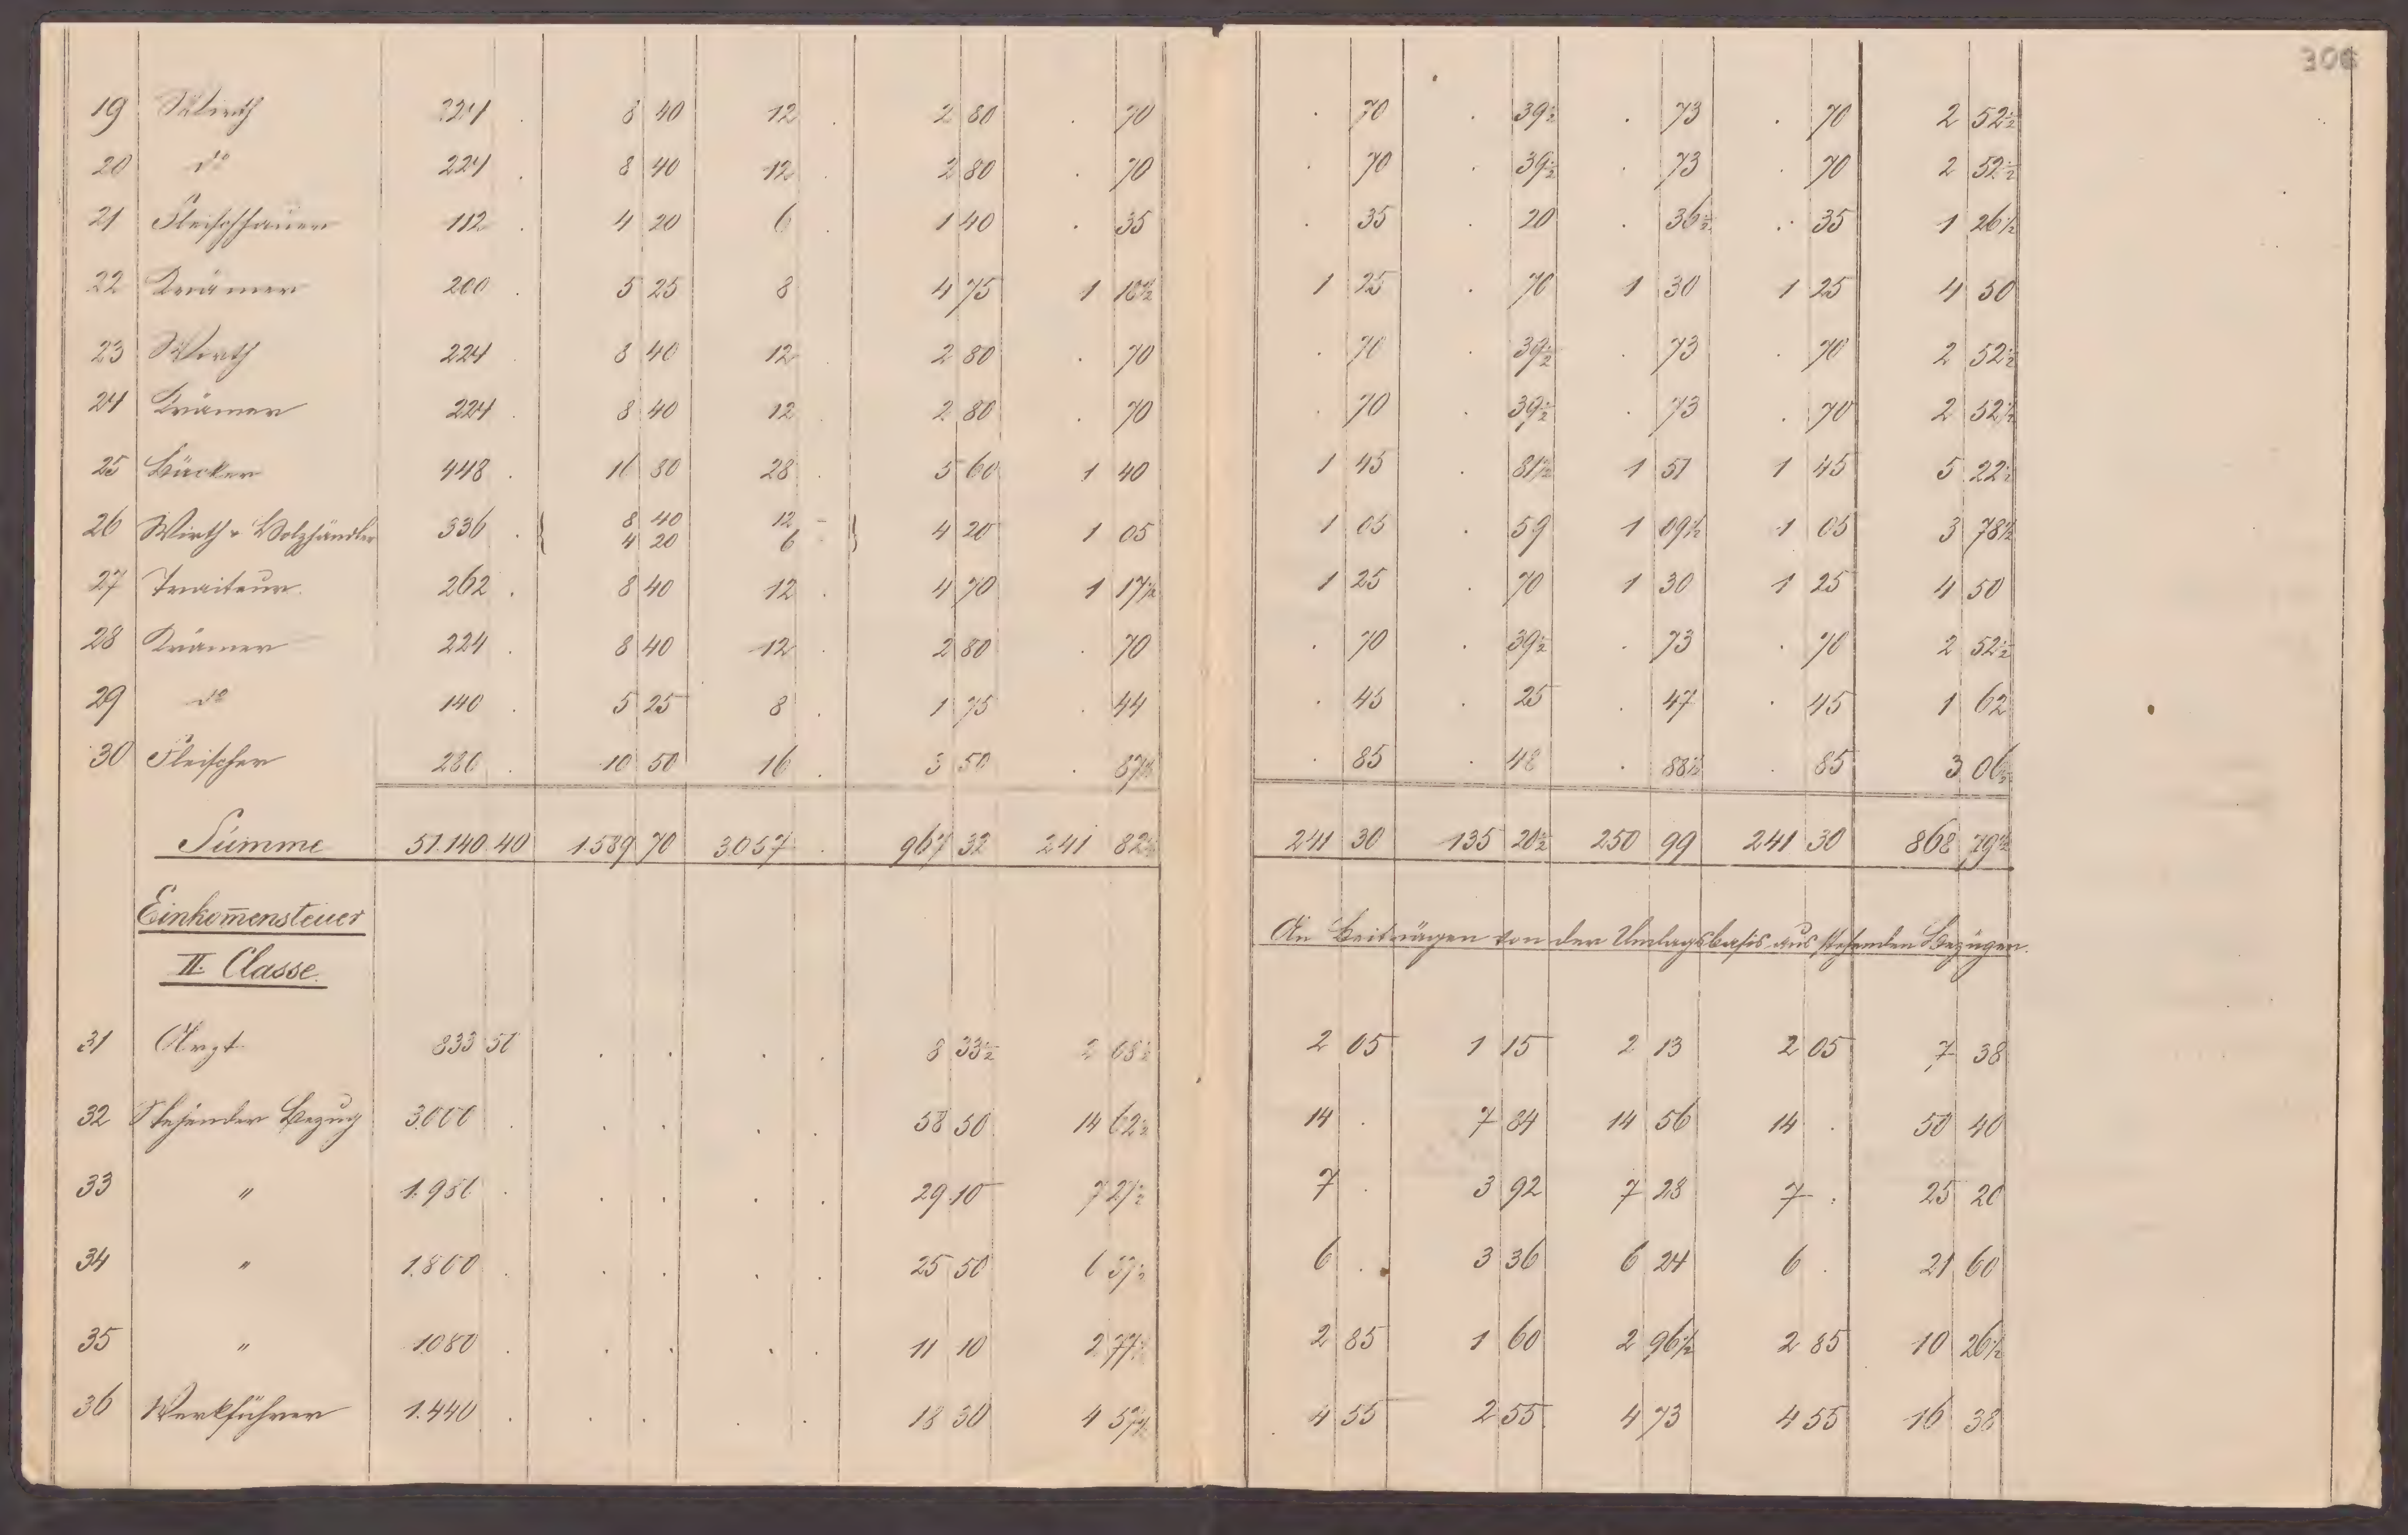 306
19 Wirth 224 . 8 40 12 . 2 80 . 70 . 70 . 39½ . 73 . 70 2 52½
20 dº 224 . 8 40 12 . 2 80 . 70 . 70 . 39½ . 73 . 70 2 52½
21 Fleischhauer 112 . 4 20 6 . 1 40 . 35 . 35 . 20 . 36½ . 35 1 26½
22 Krämer 200 . 5 25 8 4 75 1 18½ 1 25 . 70 1 30 1 25 4 50
23 Wirth 224 8 40 12 . 2 80 . 70 . 70 . 39½ . 73 . 70 2 52½
24 Krämer 224 . 8 40 12 2 80 . 70 . 70 . 39½ . 73 . 70 2 52½
25 Bäcker 448 . 16 80 28 . 5 60 1 40 1 45 . 81½ 1 51 1 45 5 22½
26 Wirth u. Holzhändler 336 . { 8 40 12 – } 4 20 1 05 1 05 . 59 1 09½ 1 05 3 78½
4 20 6
27 Traiteur. 262 . 8 40 12 . 4 70 1 17½ 1 25 . 70 1 30 1 25 4 50
28 Krämer 224 . 8 40 12 . 2 80 . 70 . 70 . 39½ . 73 . 70 2 52½
29 dº 140 . 5 25 8 . 1 75 . 44 . 45 . 25 . 47 . 45 1 62
30 Fleischer 280 . 10 50 16 . 3 50 . 87½ . 85 . 48 . 88½ . 85 3 06½
Summe 51.140 40 1.589 70 3.057 . 967 32 241 82½ 241 30 135 20½ 250 99 241 30 868 79½
Einkom̄ensteuer
II. Classe.
An Beiträgen von der Umlagsbasis aus stehenden Bezügen.
31 Arzt 833 50 . . . . 8 33½ 2 08½ 2 05 1 15 2 13 2 05 7 38
32 Stehender Bezug 3.000 . . . . . 58 50 14 62½ 14 . 7 84 14 56 14 . 50 40
33 " 1.950 . . . . . 29 10 7 27½ 7 . 3 92 7 28 7 . 25 20
34 " 1.800 . . . . . 25 50 6 37½ 6 . 3 36 6 24 6 . 21 60
35 " 1080 . . . . . 11 10 2 77½ 2 85 1 60 2 96½ 2 85 10 26½
36 Werkführer 1.440 . . . . . 18 30 4 57½ 4 55 2 55 4 73 4 55 16 38